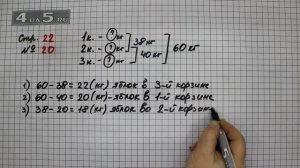 4АUS.RU
Стр. 22
№ 20
1к. - ? кг
2к. - ? кг
3к. - ? кг
38 кг
40 кг
60 кг
1) 60-38=22(кг) яблок в 3-й корзине
2) 60-40=20(кг)-яблок в 1-й корзине
3) 38-20=18(кг) яблок во 2-й корзине